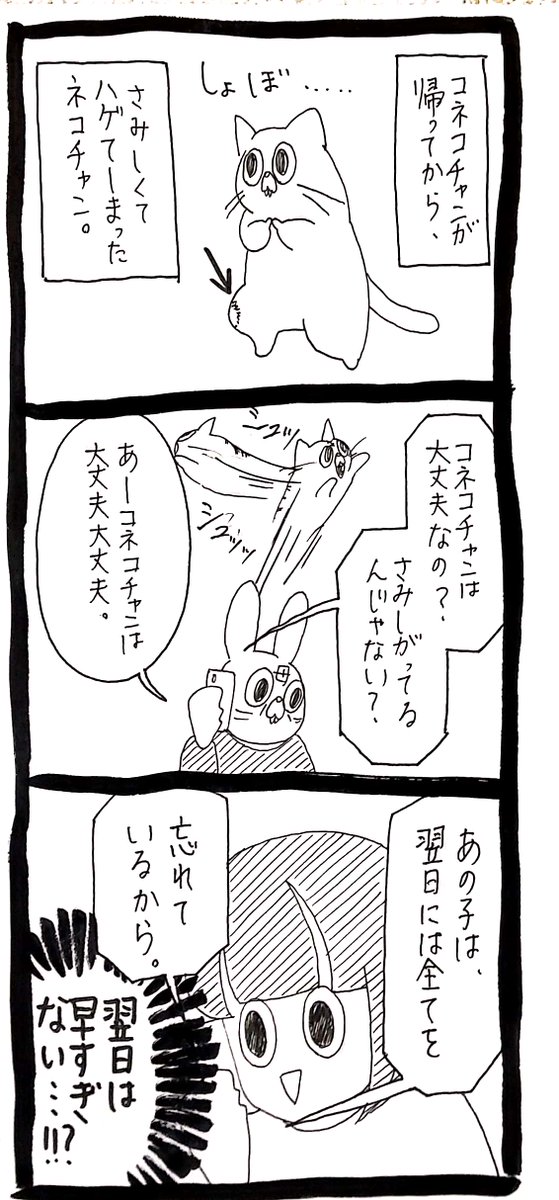 コネコチャンが
帰ってから、
しょぼ・・・・・
さみしくて
ハゲてしまった
ネコチャン。
コネコチャンは
大丈夫なの?
さみしがってる
んじゃない?
シュッ
シュッッ
あーコネコチャンは
大丈夫大丈夫。
あの子は、
翌日には全てを
忘れて
いるから。
翌日は
早すぎ
ない…!!?